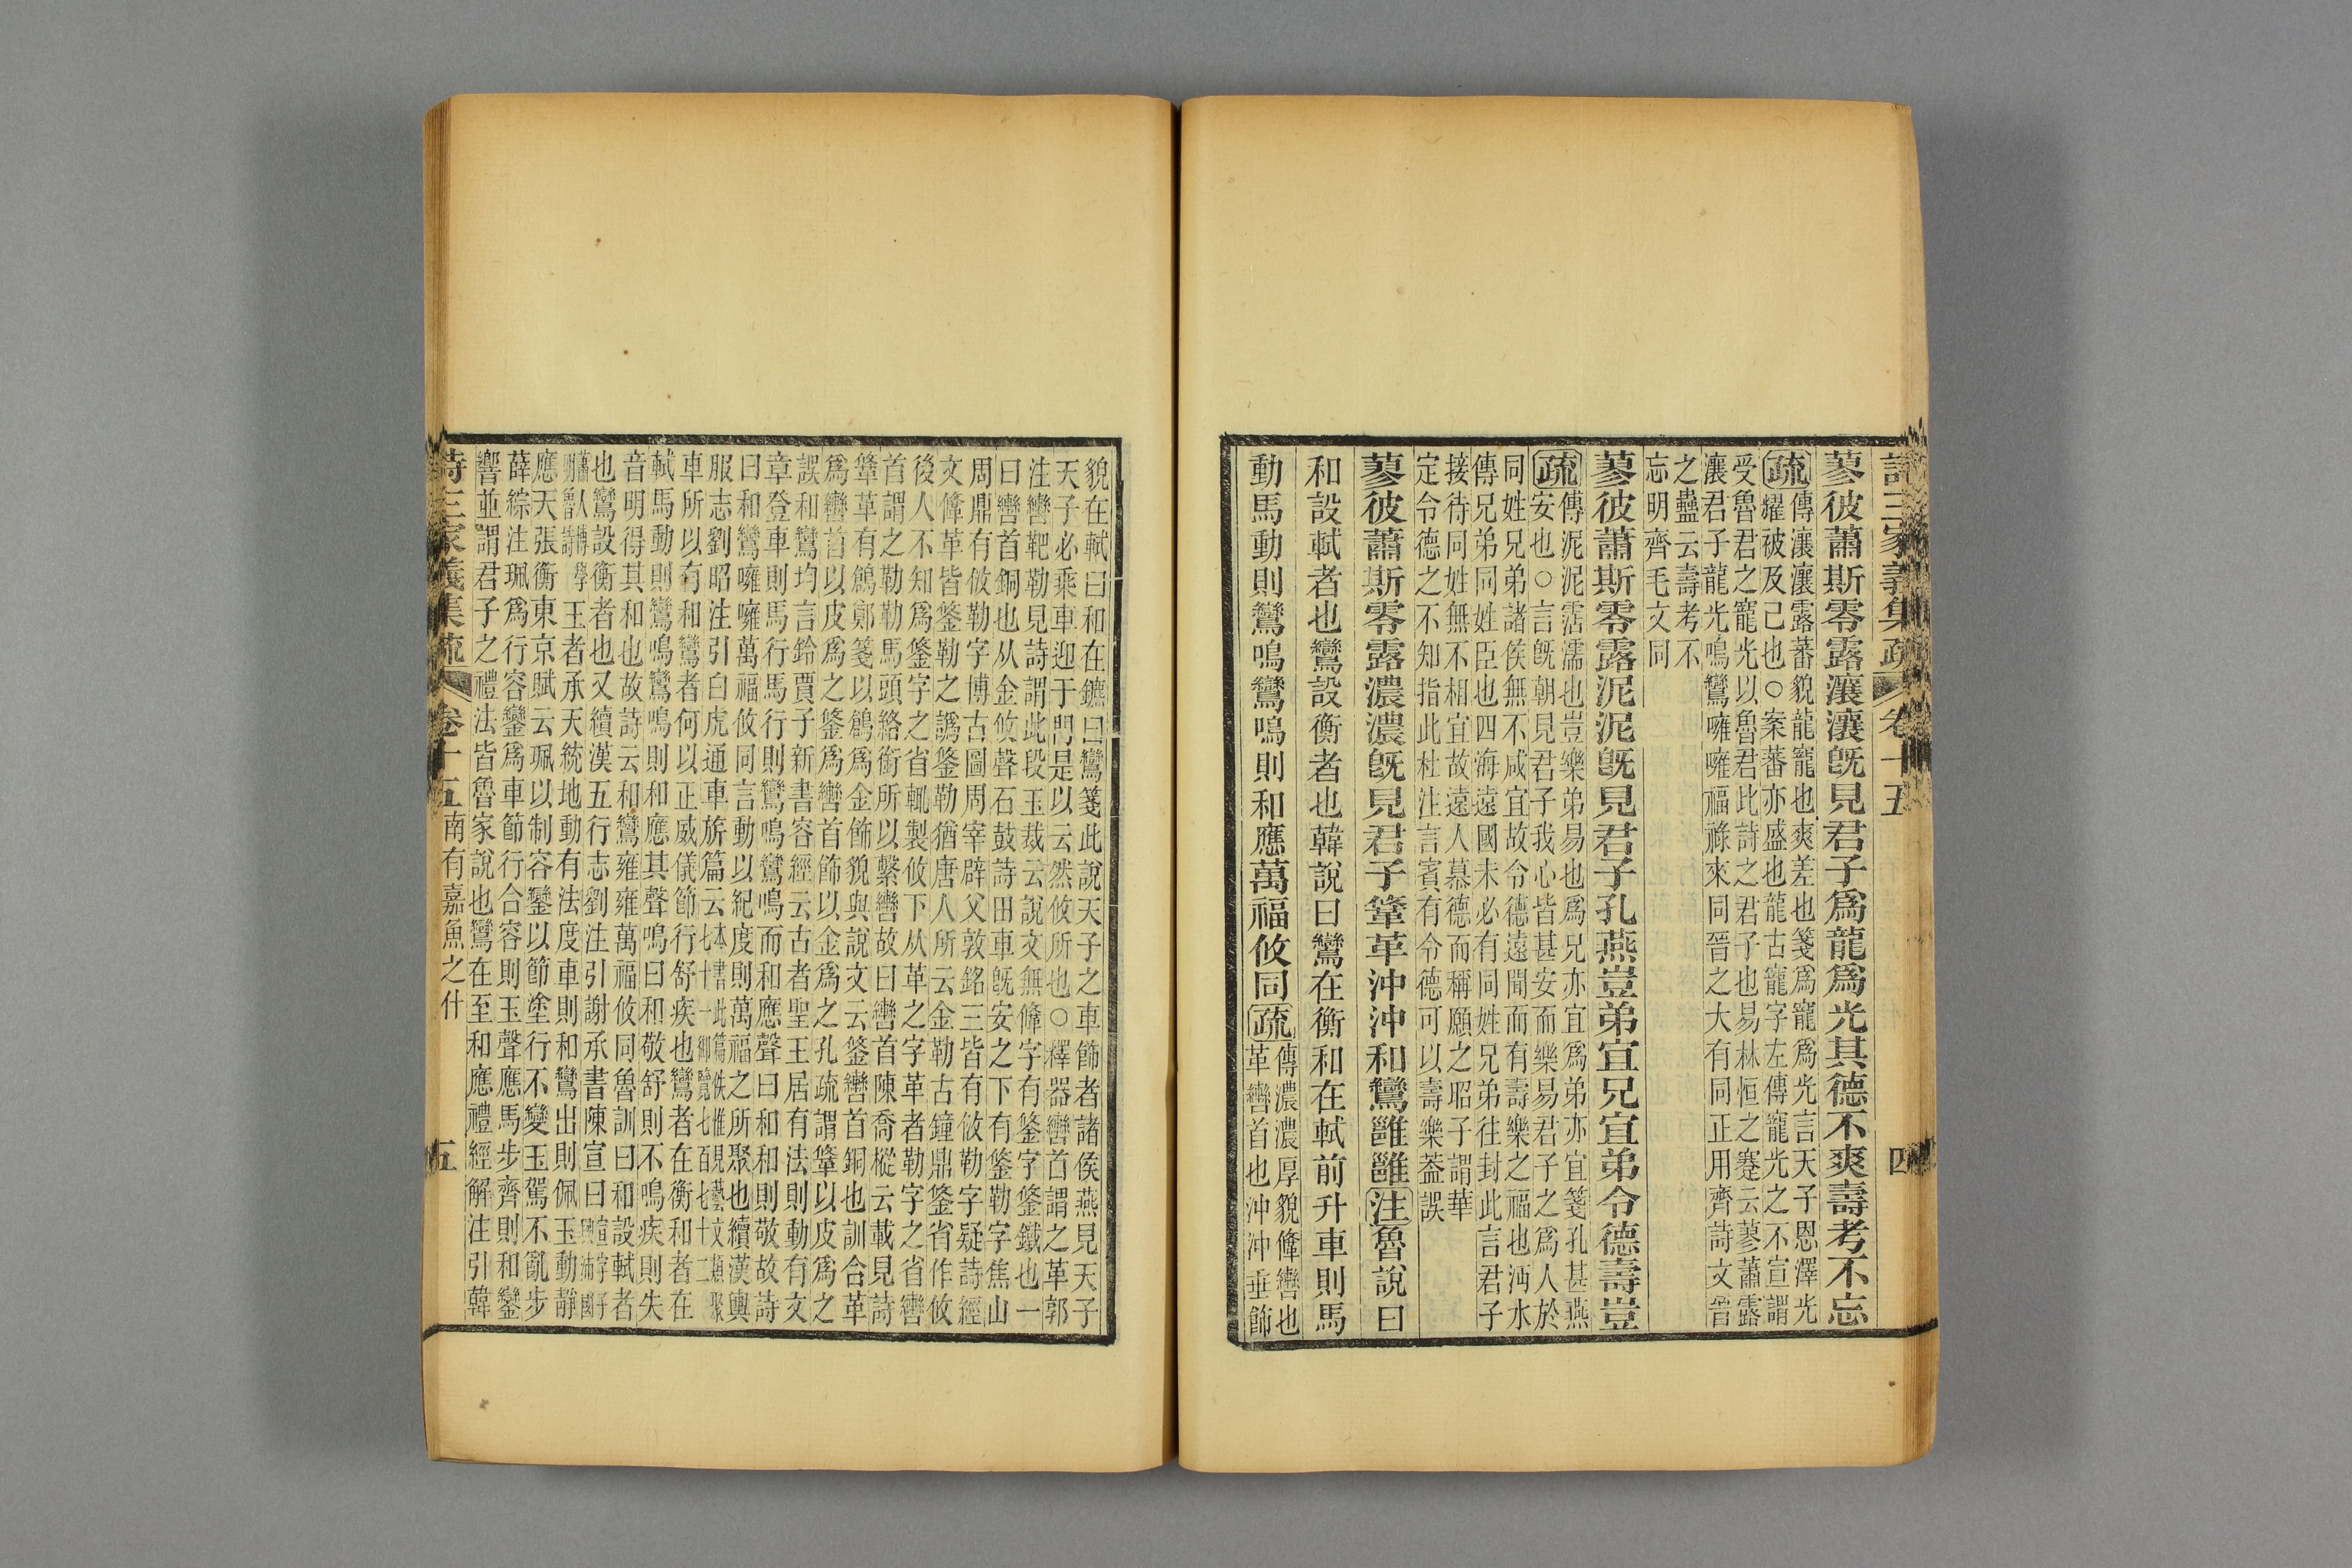 詩三家義集疏 卷十五 四
蓼彼蕭斯零露瀼瀼旣見君子爲龍爲光其德不爽壽考不忘
疏傳瀼瀼露蕃貌龍寵也爽差也箋爲寵爲光言天子恩澤光
耀被及己也○案蕃亦盛也龍古寵字左傳龍光之不宣謂
受魯君之寵光以魯君此詩之君子也易林恒之蹇云蓼蕭露
瀼君子龍光鳴鸞噰噰福祿來同晉之大有同正用齊詩文晉
之蠱云壽考不
忘明齊毛文同
蓼彼蕭斯零露泥泥旣見君子孔燕豈弟宜兄宜弟令德壽豈
疏傳泥泥霑濡也豈樂弟易也爲兄亦宜爲弟亦宜箋孔甚燕
安也○言旣朝見君子我心皆甚安而樂易君子之爲人於
同姓兄弟諸侯無不咸宜故令德遠聞而有壽樂之福也沔水
傳兄弟同姓臣也四海遠國未必有同姓兄弟往封此言君子
接待同姓無不相宜故遠人慕德而稱願之昭子謂華
定令德之不知指此杜注言賓有令德可以壽樂葢誤
蓼彼蕭斯零露濃濃旣見君子鞗革沖沖和鸞雝雝注魯說曰
和設軾者也鸞設衡者也韓說曰鸞在衡和在軾前升車則馬
動馬動則鸞鳴鸞鳴則和應萬福攸同疏傳濃濃厚貌鞗轡也
革轡首也沖沖垂飾
貌在軾曰和在鑣曰鸞箋此說天子之車飾者諸侯燕見天子
天子必乘車迎于門是以云然攸所也○釋器轡首謂之革郭
注轡靶勒見詩謂此段玉裁云說文無鞗字有鋚字鋚鐵也一
曰轡首銅也从金攸聲石鼓詩田車旣安之下有鋚勒字焦山
周鼎有攸勒字博古圖周宰辟父敦銘三皆有攸勒字疑詩經
文鞗革皆鋚勒之譌鋚勒猶唐人所云金勒古鐘鼎鋚省作攸
後人不知爲鋚字之省輒製攸下从革之字革者勒字之省轡
首謂之勒勒馬頭絡銜所以繫轡故曰轡首陳喬樅云載見詩
鞗革有鶬鄭箋以鶬爲金飾貌與說文云鋚轡首銅也訓合革
爲轡首以皮爲之鋚爲轡首飾以金爲之孔疏謂鞗以皮爲之
誤和鸞均言鈴賈子新書容經云古者聖王居有法則動有文
章登車則馬行馬行則鸞鳴鸞鳴而和應聲曰和和則敬故詩
曰和鸞噰噰萬福攸同言動以紀度則萬福之所聚也續漢輿
服志劉昭注引白虎通車旂篇云本書此篇佚惟見藝文類聚
七十一御覽七百七十二
車所以有和鸞者何以正威儀節行舒疾也鸞者在衡和者在
軾馬動則鸞鳴鸞鳴則和應其聲鳴曰和敬舒則不鳴疾則失
音明得其和也故詩云和鸞雍雍萬福攸同魯訓曰和設軾者
也鸞設衡者也又續漢五行志劉注引謝承書陳宣曰宣字子興沛國
蕭人博學明魯詩王者承天統地動有法度車則和鸞出則佩玉動靜
應天張衡東京賦云珮以制容鑾以節塗行不變玉駕不亂步
薛綜注珮爲行容鑾爲車節行合容則玉聲應馬步齊則和鑾
響並謂君子之禮法皆魯家說也鸞在至和應禮經解注引韓
詩三家義集疏 卷十五 南有嘉魚之什 五